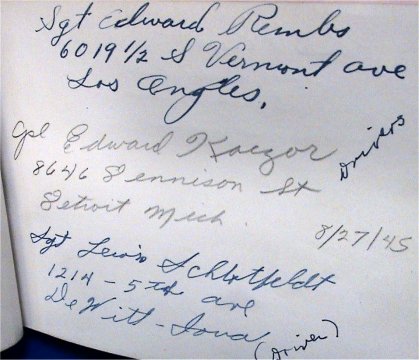 Sgt Edward Rembs
6019 1/2 S Vermont ave
Los Angles.
Cpl Edward Kaczor
Drivers
8646 Dennison St
Detroit Mich
8/27/45
Sgt Lewis Schlotfeldt
1214 - 5th ave
De Witt - Iowa
(Driver)